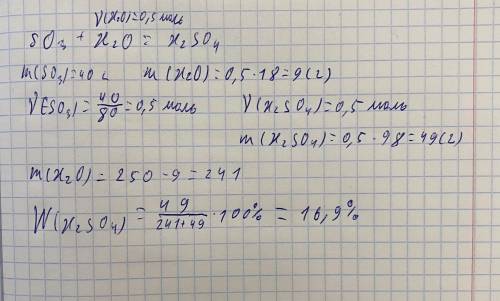 ν(H2O)=0,5 моль
SO3 + H2O = H2SO4
m(SO3)=40 г m(H2O)=0,5·18=9(г)
ν(SO3)=40/80=0,5 моль ν(H2SO4)=0,5 моль
m(H2SO4)=0,5·98=49(г)
m(H2O)=250-9=241
W(H2SO4)=49/241+49·100%=16,9%